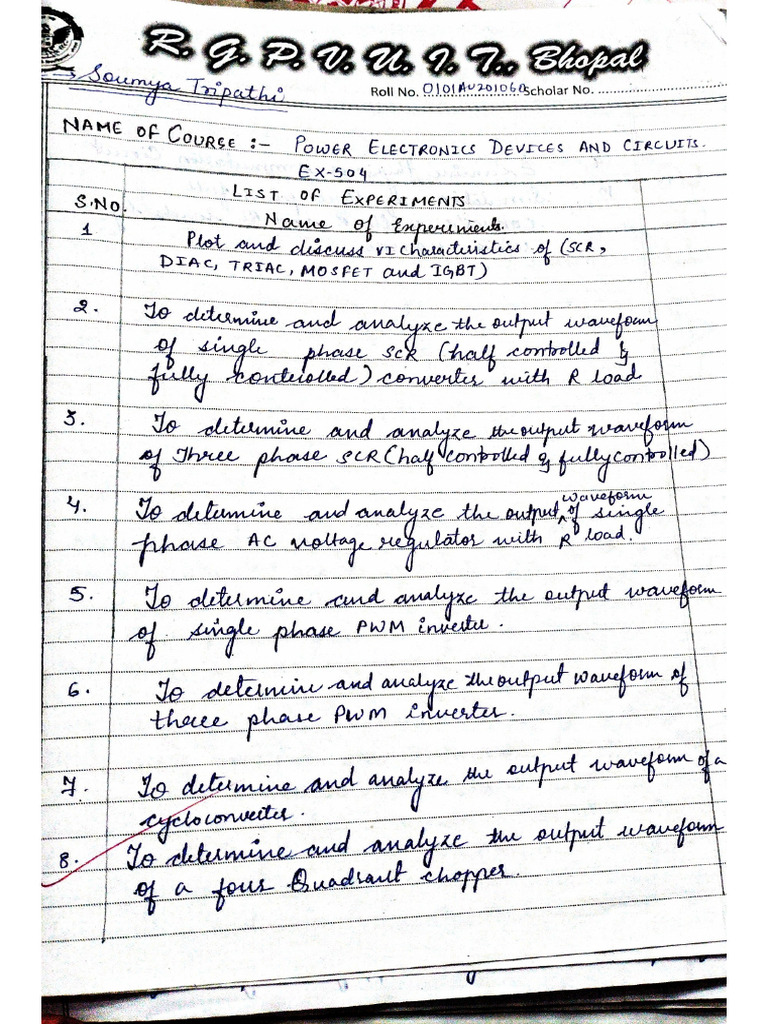 R. G. P. V. U. I. T., Bhopal
Soumya Tripathi
Roll No. 0101AU201060 Scholar No. ..........................
NAME OF COURSE :- POWER ELECTRONICS DEVICES AND CIRCUITS.
EX-504
LIST OF EXPERIMENTS
S.NO. Name of Experiments.
1 Plot and discuss VI Characteristics of (SCR,
DIAC, TRIAC, MOSFET and IGBT)
2. To determine and analyze the output waveform
of single phase SCR (half controlled &
fully controlled) converter with R load
3. To determine and analyze the output waveform
of Three phase SCR (half controlled & fully controlled)
4. To determine and analyze the output waveform of single
phase AC voltage regulator with R load.
5. To determine and analyze the output waveform
of single phase PWM inverter.
6. To determine and analyze the output waveform of
three phase PWM inverter.
7. To determine and analyze the output waveform of a
cycloconverter.
8. To determine and analyze the output waveform
of a four Quadrant chopper.